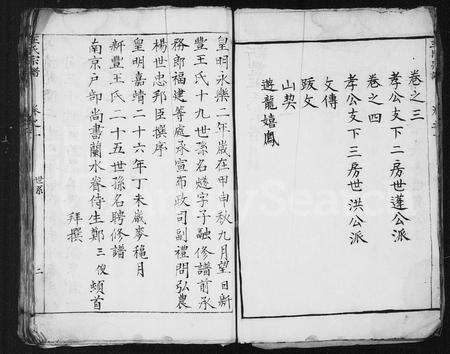 卷之三
孝公支下二房世蓬公派
卷之四
孝公支下三房世洪公派
文傳
跋文
山契
遊龍嬉鳳
皇明永樂二年歲在甲申秋九月望日新
豐王氏十九世孫名燧字子融修譜前承
務郎福建等處承宣布政司副禮問弘農
楊世忠邦臣撰序
皇明嘉靖二十六年丁未歲麥穐月
新豐王氏二十五世孫名聘修譜
南京戶部尚書蘭水眷侍生鄭三俊頓首
拜撰
世系
二